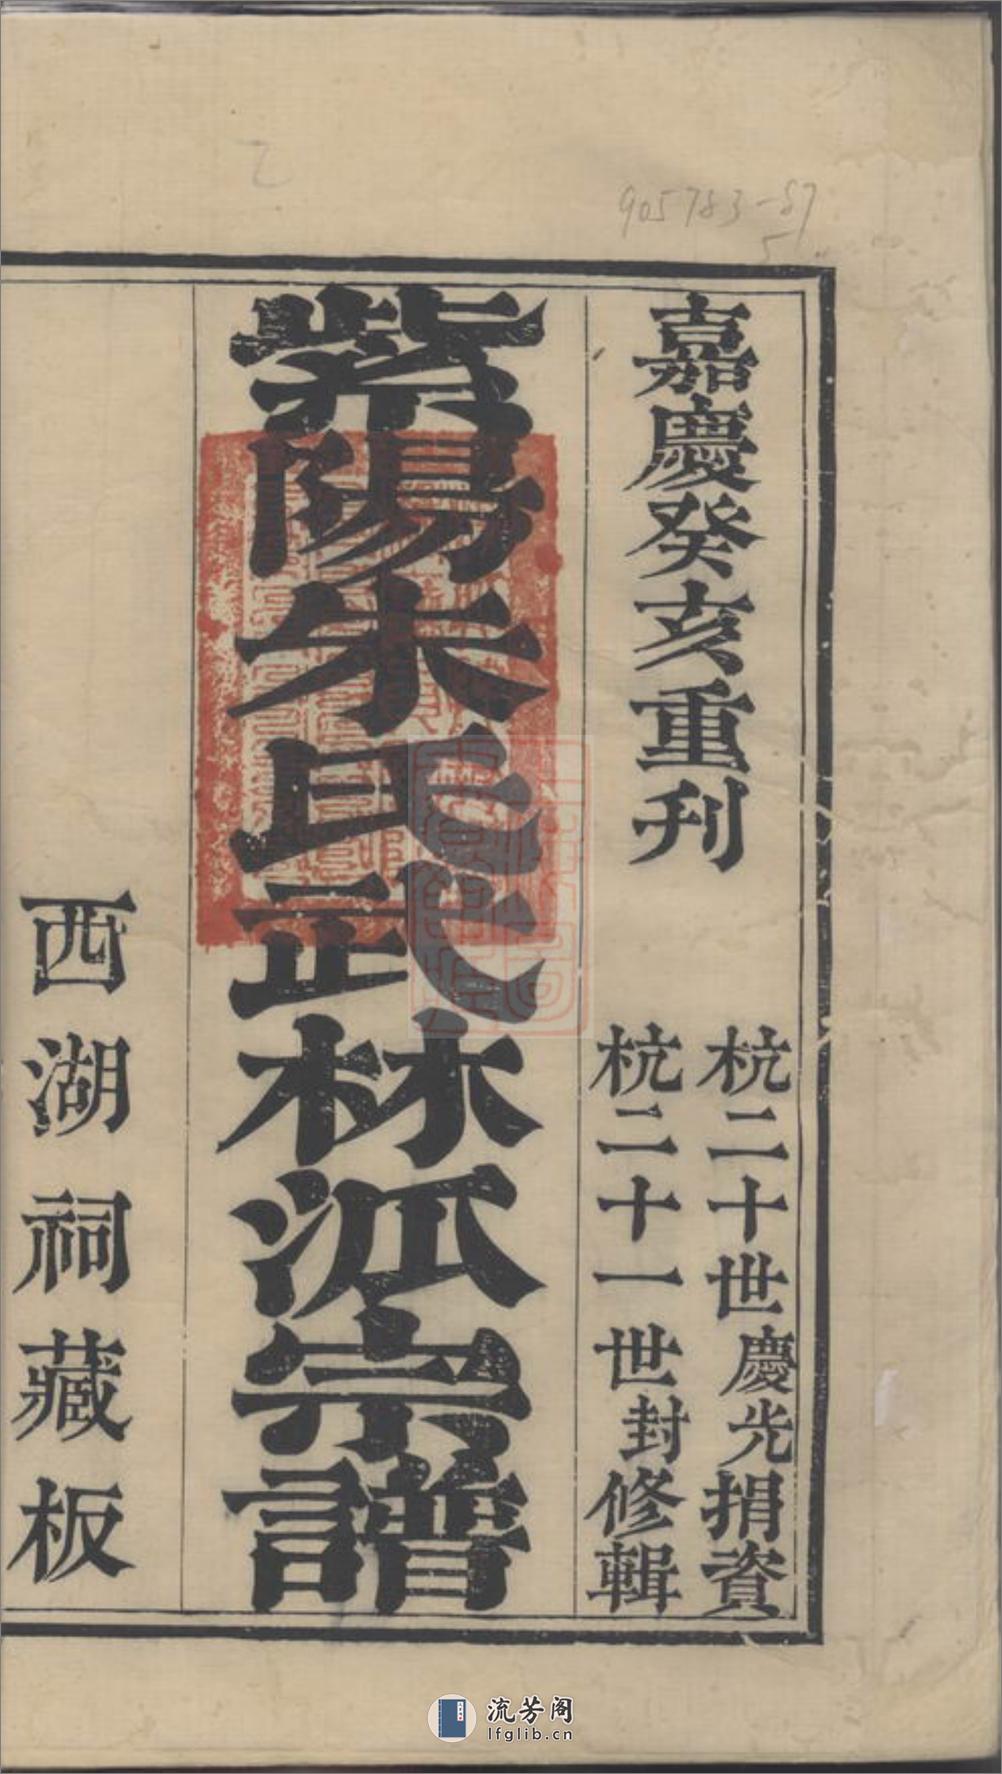 905783-87
5
嘉慶癸亥重刊
杭二十世慶光捐資
杭二十一世封修輯
紫陽朱氏武林派宗譜
西湖祠藏板
流芳阁
lfglib.cn